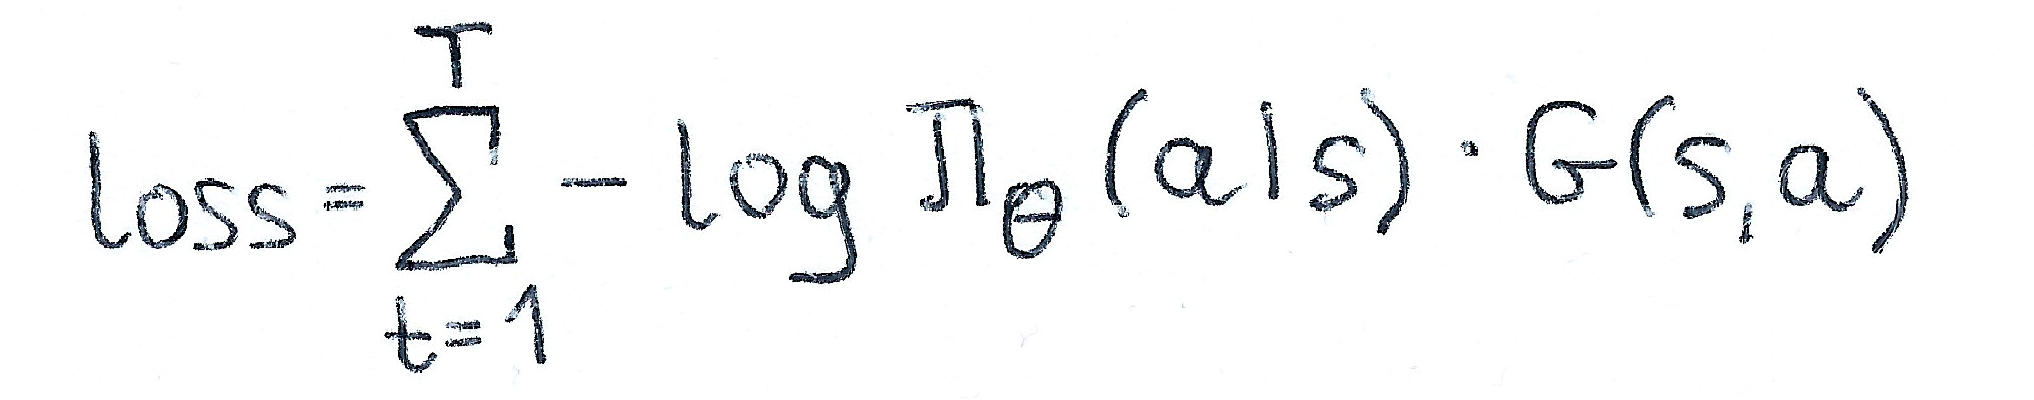 loss = \sum_{t=1}^{T} - log π_θ (a|s) · G(s,a)